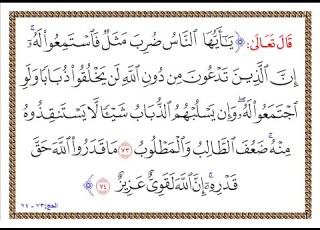 قَالَ تَعَالَىٰ: ﴿ يَٰٓأَيُّهَا ٱلنَّاسُ ضُرِبَ مَثَلٞ فَٱسۡتَمِعُواْ لَهُۥٓۚ
إِنَّ ٱلَّذِينَ تَدۡعُونَ مِن دُونِ ٱللَّهِ لَن يَخۡلُقُواْ ذُبَابٗا وَلَوِ
ٱجۡتَمَعُواْ لَهُۥۖ وَإِن يَسۡلُبۡهُمُ ٱلذُّبَابُ شَيۡـٔٗا لَّا يَسۡتَنقِذُوهُ
مِنۡهُۚ ضَعُفَ ٱلطَّالِبُ وَٱلۡمَطۡلُوبُ ٧٣ مَا قَدَرُواْ ٱللَّهَ حَقَّ
قَدۡرِهِۦٓۚ إِنَّ ٱللَّهَ لَقَوِيٌّ عَزِيزٌ ٧٤ ﴾
الحج: ٧٣ - ٧٤